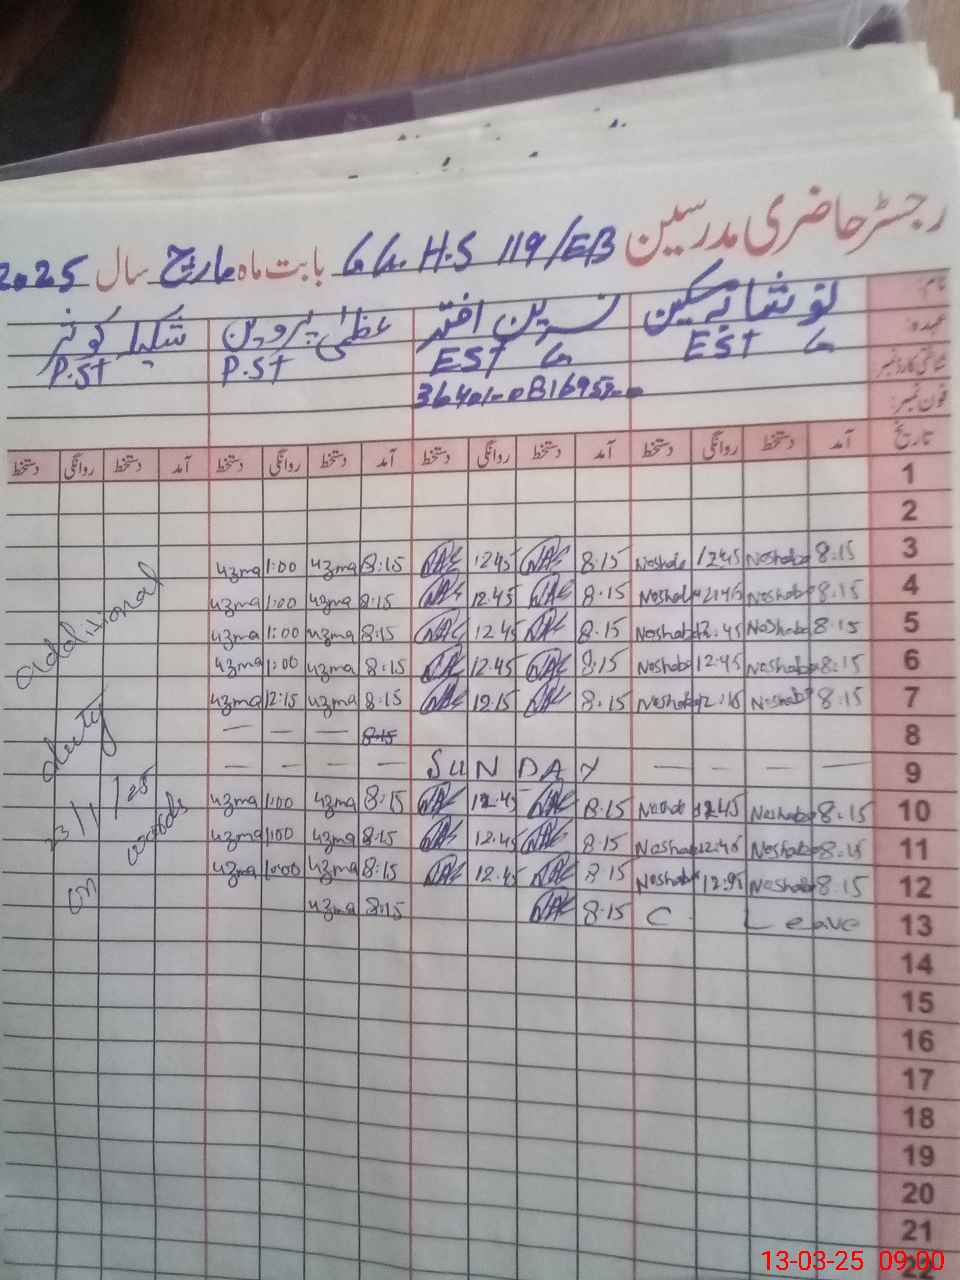 رجسٹر حاضری مدرسین G.G.H.S 119/EB بابت ماہ مارچ سال 2025
نام: نوشابہ مسکین نسرین اختر عظمیٰ پروین شکیلہ کوثر
عہدہ: EST G EST G P.ST P.ST
شناختی کارڈ نمبر
فون نمبر:
تاریخ آمد دستخط روانگی دستخط آمد دستخط روانگی دستخط آمد دستخط روانگی دستخط آمد دستخط روانگی دستخط
1
2
3 8:15 Noshaba 12:45 Noshaba 8:15 12:45 8:15 uzma 1:00 uzma
4 8:15 Noshaba 12:45 Noshaba 8:15 12.45 8:15 uzma 1:00 uzma
5 8:15 Noshaba 12:45 Noshaba 8.15 12.45 8:15 uzma 1:00 uzma
6 8:15 Noshaba 12:45 Noshaba 8:15 12.45 8:15 uzma 1:00 uzma
7 8:15 Noshaba 12:15 Noshaba 8.15 12.15 8:15 uzma 12:15 uzma
8 — — — 8:15
9 — — — — SUNDAY — — — —
10 8:15 Noshaba 12:45 Noshaba 8.15 12.45 8:15 uzma 1:00 uzma
11 8:15 Noshaba 12:45 Noshaba 8.15 12.45 8:15 uzma 1:00 uzma
12 8:15 Noshaba 12:45 Noshaba 8.15 12.45 8:15 uzma 1:00 uzma
13 Leave C 8.15 8:15 uzma
14
15
16
17
18
19
20
21
22
additional
duty
on 23/1/25
13-03-25 09:00